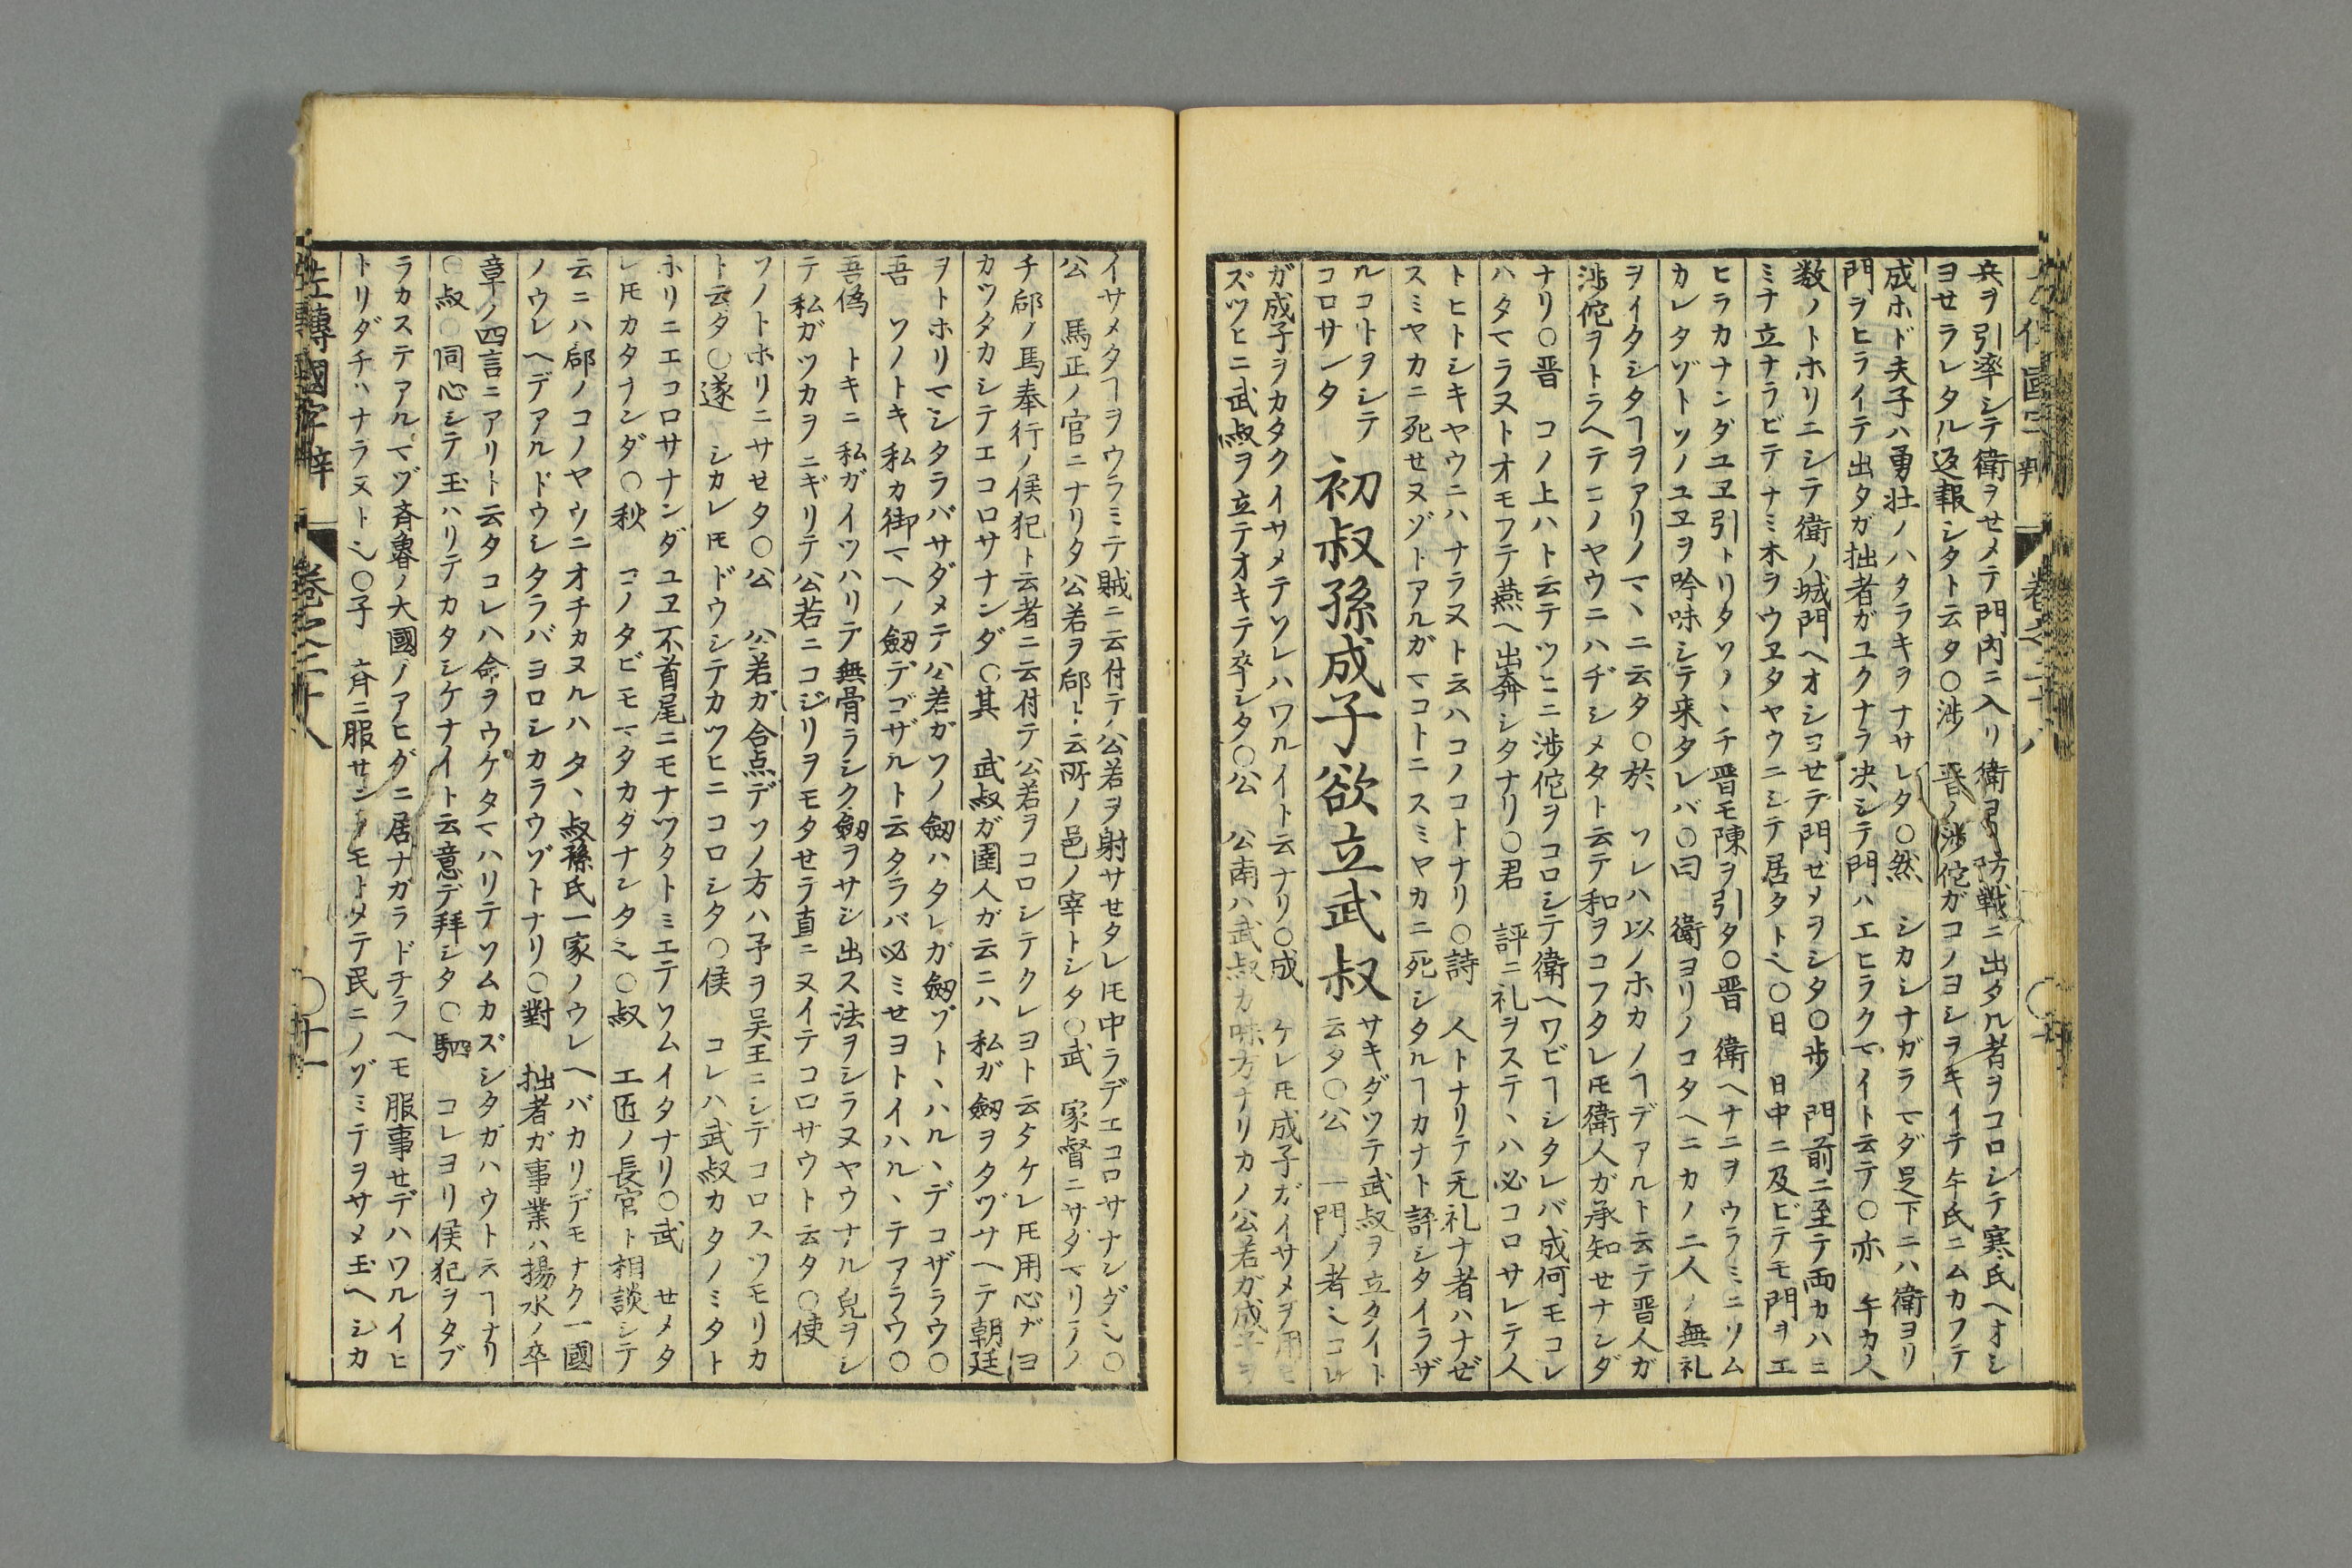 兵ヲ引率シテ衛ヲセメテ門内ニ入リ衛ヨリ防戦ニ出タル者ヲコロシテ寒氏ヘオシ
ヨセラレタル返報シタト云タ〇渉 晋ノ渉佗ガコノヨシヲキイテ午氏ニムカフテ
成ホド夫子ハ勇壮ノハタラキヲナサレタ〇然 シカシナガラマダ足下ニハ衛ヨリ
門ヲヒライテ出タガ拙者ガユクナラ决シテ門ハエヒラクマイト云テ〇亦 午カ人
数ノトホリニシテ衛ノ城門ヘオシヨセテ門ゼメヲシタ〇歩 門前ニ至テ両カハニ
ミナ立ナラビテナミ木ヲウヱタヤウニシテ居タト也〇日 日中ニ及ビテモ門ヲエ
ヒラカナンダユヱ引トリタソノヽチ晋モ陳ヲ引タ〇晋 衛ヘナニヲウラミニソム
カレタゾトソノユヱヲ吟味シテ来タレバ〇曰 衛ヨリノコタヘニカノ二人ノ無礼
ヲイタシタヿヲアリノマヽニ云タ〇於 ソレハ以ノホカノヿデアルト云テ晋人ガ
渉佗ヲトラヘテコノヤウニハヂシメタト云テ和ヲコフタレ𪜈衛人ガ承知セナンダ
ナリ〇晋 コノ上ハト云テツヒニ渉佗ヲコロシテ衛ヘワビヿシタレバ成何モコレ
ハタマラヌトオモフテ燕ヘ出奔シタナリ〇君 評ニ礼ヲステヽハ必コロサレテ人
トヒトシキヤウニハナラヌト云ハコノコトナリ〇詩 人トナリテ无礼ナ者ハナゼ
スミヤカニ死セヌゾトアルガマコトニスミヤカニ死シタルヿカナト評シタイラザ
ルコトヲシテ
コロサレタ
初叔孫成子欲立武叔
サキダツテ武叔ヲ立タイト
云タ〇公 一門ノ者也コレ
ガ成子ヲカタクイサメテソレハワルイト云ナリ〇成 ケレ𪜈成子ガイサメヲ用モ
ズツヒニ武叔ヲ立テオキテ卒シタ〇公 公南ハ武叔カ味方ナリカノ公若ガ成子ヲ
イサメタヿヲウラミテ賊ニ云付テ公若ヲ射サセタレ𪜈中ラデエコロサナンダ也〇
公 馬正ノ官ニナリタ公若ヲ郈ト云所ノ邑ノ宰トシタ〇武 家督ニサダマリテノ
チ郈ノ馬奉行ノ侯犯ト云者ニ云付テ公若ヲコロシテクレヨト云タケレ𪜈用心ガヨ
カツタカシテエコロサナンダ〇其 武叔ガ圉人ガ云ニハ私ガ劔ヲタヅサヘテ朝廷
ヲトホリマシタラバサダメテ公若ガソノ劔ハタレガ劔ゾトヽハルヽデコザラウ〇
吾 ソノトキ私カ御マヘノ劔デゴザルト云タラバ必ミセヨトイハルヽテアラウ〇
吾偽 トキニ私ガイツハリテ無骨ラシク劔ヲサシ出ス法ヲシラヌヤウナル皃ヲシ
テ私ガツカヲニギリテ公若ニコジリヲモタセラ直ニヌイテコロサウト云タ〇使
ソノトホリニサセタ〇公 公若ガ合点デソノ方ハ予ヲ吴王ニシテコロスツモリカ
ト云タ〇遂 シカレ𪜈ドウシテカツヒニコロシタ〇侯 コレハ武叔カタノミタト
ホリニエコロサナンダユヱ不首尾ニモナツタトミエテソムイタナリ〇武 セメタ
レ𪜈カタナンダ〇秋 コノタビモマタカタナンタ也〇叔 工匠ノ長官ト相談シテ
云ニハ郈ノコノヤウニオチカヌルハタヽ叔孫氏一家ノウレヘバカリデモナク一國
ノウレヘデアルドウシタラバヨロシカラウゾトナリ〇對 拙者ガ事業ハ揚水ノ卒
章ノ四言ニアリト云タコレハ命ヲウケタマハリテソムカズシタガハウト云ヿナリ
〇叔 同心シテ玉ハリテカタシケナイト云意デ拜シタ〇駟 コレヨリ侯犯ヲタブ
ラカステアルマヅ斉魯ノ大國ノアヒダニ居ナガラドチラヘモ服事セデハワルイヒ
トリダチハナラヌト也〇子 斉ニ服センヿモトメテ民ニノゾミテヲサメ玉ヘシカ
左傳國字辨 巻之二十八 〇十一